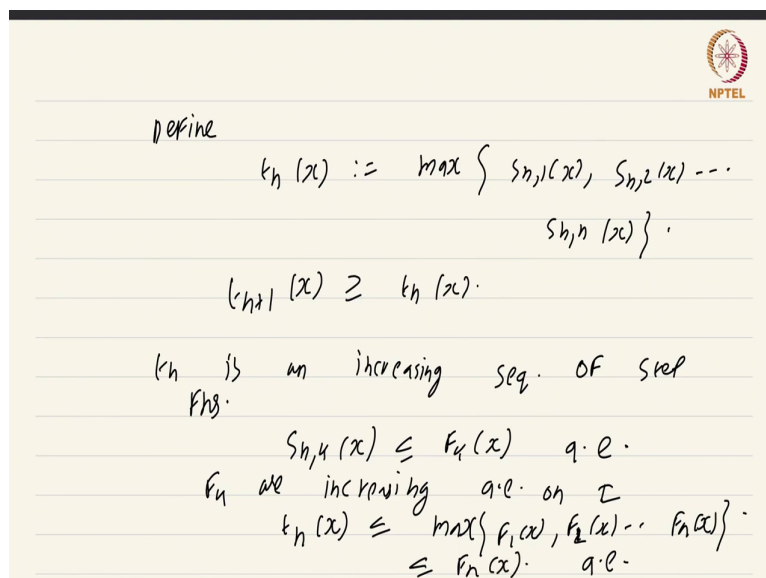 NPTEL
Define
tn (x) := max { Sn,1(x), Sn,2(x) ---
Sn,n (x) } .
tn+1 (x) ≥ tn (x).
tn is an increasing seq. of step
Fns.
Sn,k (x) ≤ Fk (x) a.e.
Fk are increasing a.e. on I
tn (x) ≤ max{ F1(x), F2(x) -- Fn(x) } .
≤ Fn (x). a.e.